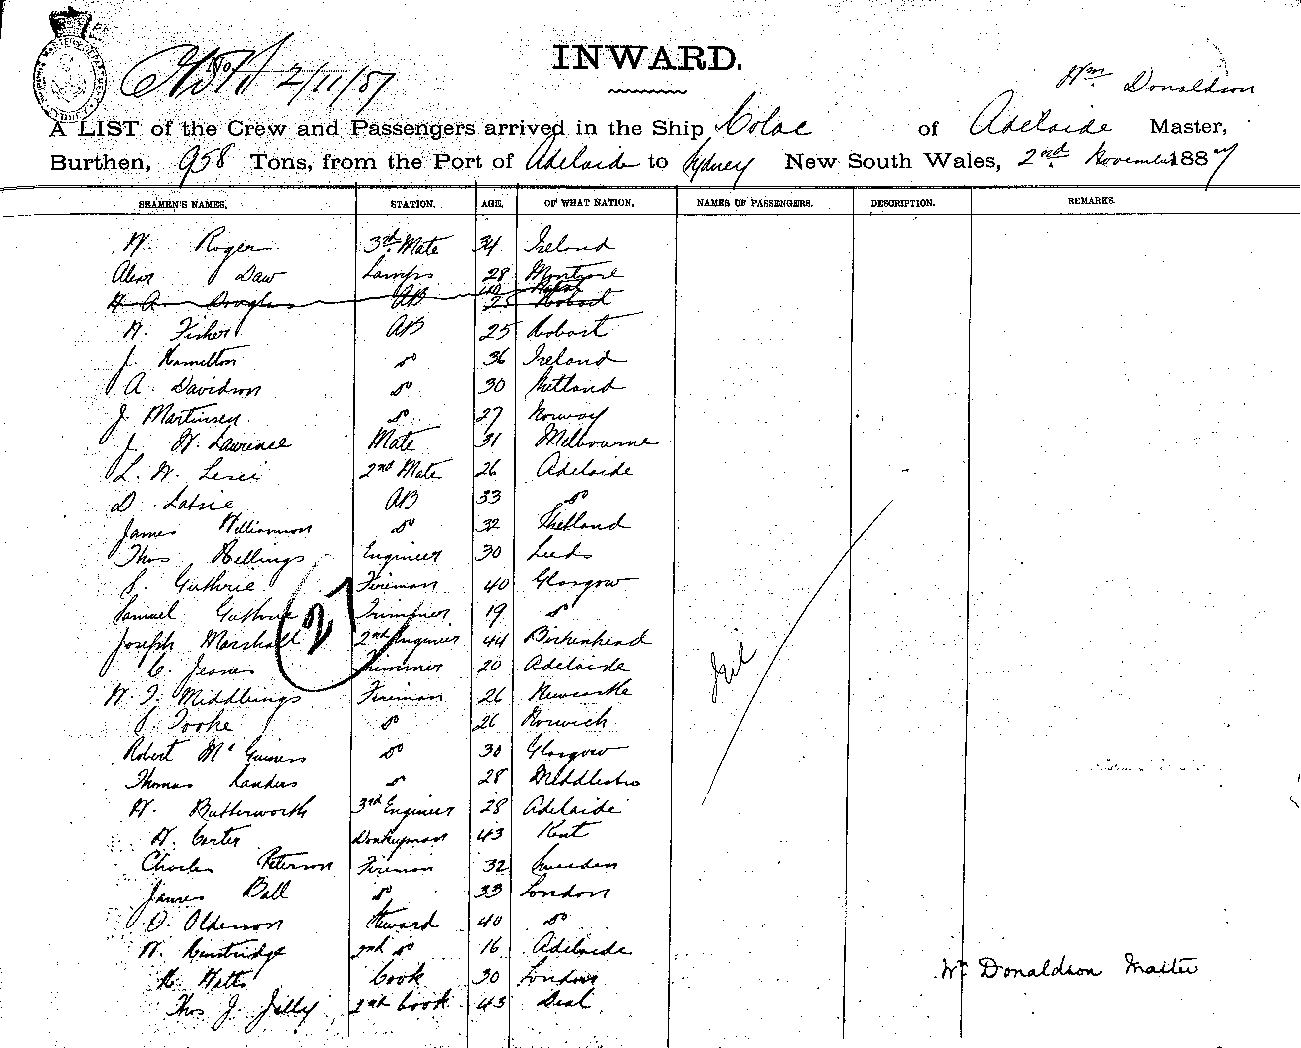 INWARD.
2/11/87
Wm Donaldson
A LIST of the Crew and Passengers arrived in the Ship Colac of Adelaide Master,
Burthen, 958 Tons, from the Port of Adelaide to Sydney New South Wales, 2nd November 1887
SEAMEN'S NAMES. STATION. AGE. OF WHAT NATION. NAMES OF PASSENGERS. DESCRIPTION. REMARKS.
W. Roger 3rd Mate 34 Ireland
Alexr Daw Lamps 28 Montrose
A. Douglas AB 25 Hobart
W. Fisher AB 25 Hobart
J. Hamilton do 36 Ireland
A. Davidson do 30 Shetland
J. Martinsen do 27 Norway
J. W. Lawrence Mate 31 Melbourne
L. W. 2nd Mate 26 Adelaide
D. AB 33 do
James Williamson do 32 Shetland
Thos Hellings Engineer 30 Leeds
Guthrie Fireman 40 Glasgow
Samuel Guthrie Trimmer 19 do
Joseph Marshall 2nd Engineer 44 Birkenhead
C. Trimmer 20 Adelaide
27
Nil
W. J. Middlings Fireman 26 Newcastle
Tooke do 26 Norwich
Robert McGuiness do 30 Glasgow
Thomas Landers do 28 Middlesbro
W. Butterworth 3rd Engineer 28 Adelaide
W. Carter Donkeyman 43 Kent
Charles Peterson Fireman 32 Sweden
James Ball do 33 London
O. Olderson Steward 40 do
W. 2nd do 16 Adelaide
Watts Cook 30 London
Wm Donaldson Master
Thos J. Jilly 2nd Cook 43 Deal